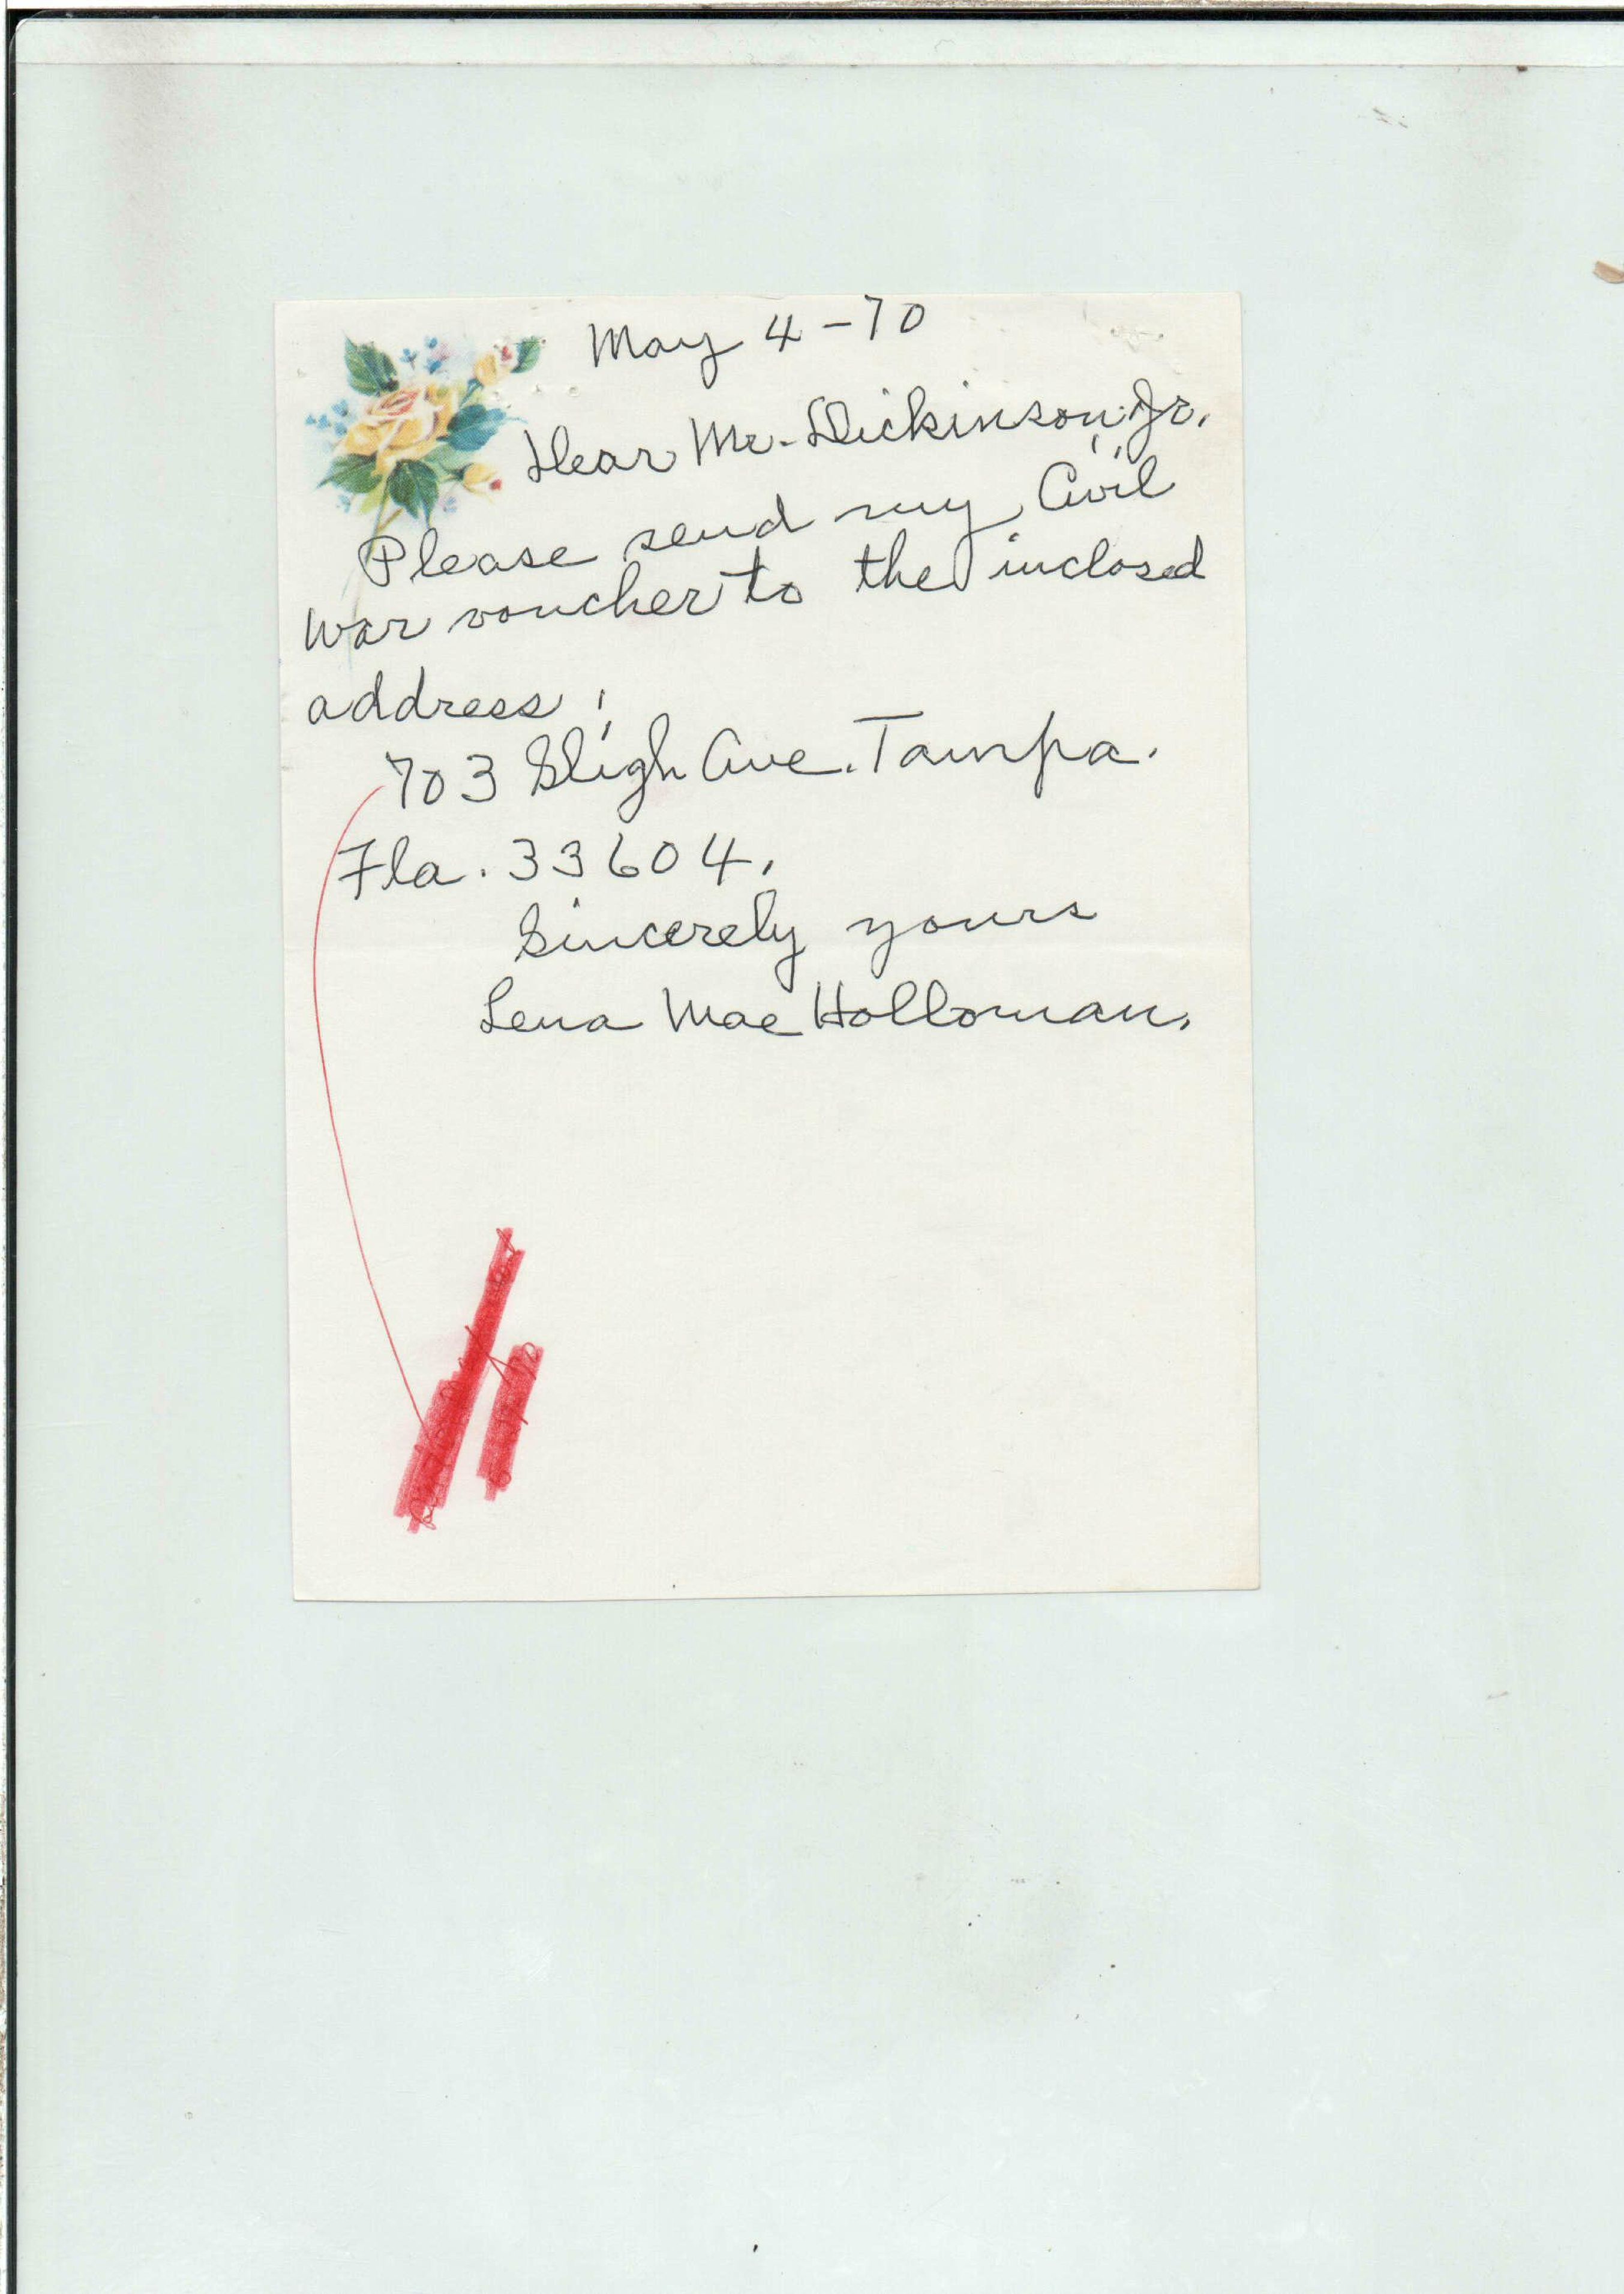 May 4-70
Dear Mr. Dickinson, Jr.
Please send my Civil
War voucher to the inclosed
address:
703 Sligh Ave. Tampa.
Fla. 33604.
Sincerely yours
Lena Mae Holloman.